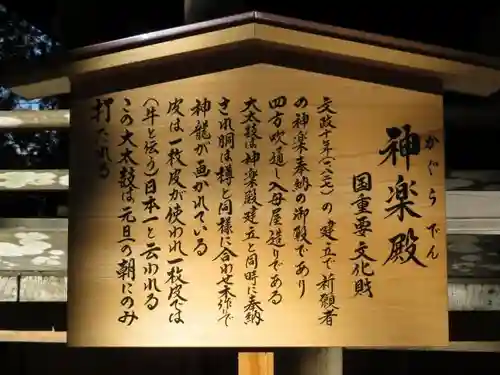 かぐらでん
神楽殿
国重要文化財
文政十年(一八二七)の建立で祈願者
の神楽奉納の御殿であり
四方吹通し入母屋造りである
大太鼓は神楽殿建立と同時に奉納
され胴は樽と同様に合わせ木作で
神龍が画かれている
皮は一枚皮が使われ一枚皮では
(牛と云う)日本一と云われる
この大太鼓は元旦の朝にのみ
打たれる